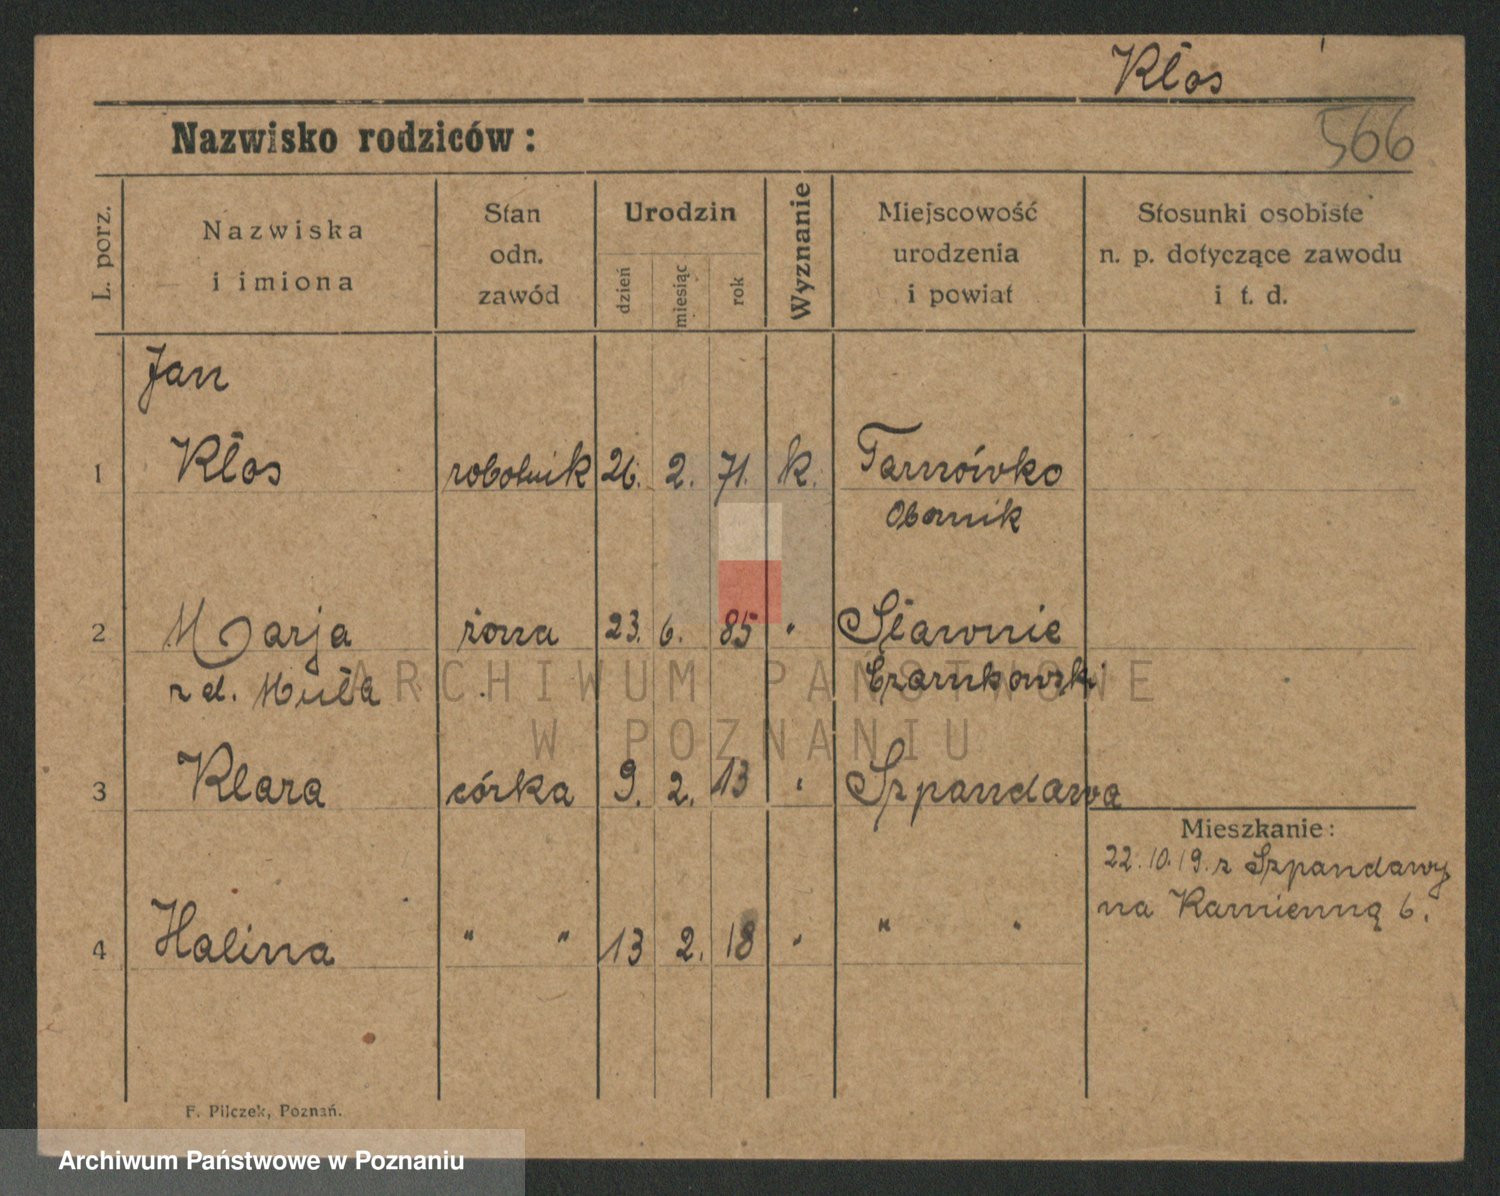 Kłos
Nazwisko rodziców:
566
L. porz.
Nazwiska
i imiona
Stan
odn.
zawód
Urodzin
dzień
miesiąc
rok
Wyznanie
Miejscowość
urodzenia
i powiat
Stosunki osobiste
n. p. dotyczące zawodu
i t. d.
Jan
1 Kłos robotnik 26. 2. 71. k. Tarnówko
Obornik
2 Marja żona 23. 6. 85 " Sławnie
z d. Muła Czarnkowski
3 Klara córka 9. 2. 13 " Szpandawa
Mieszkanie:
22.10.19. z Szpandawy
na Kamienną 6.
4 Halina " " 13 2. 18 " " "
F. Pilczek, Poznań.
ARCHIWUM PAŃSTWOWE
W POZNANIU
Archiwum Państwowe w Poznaniu